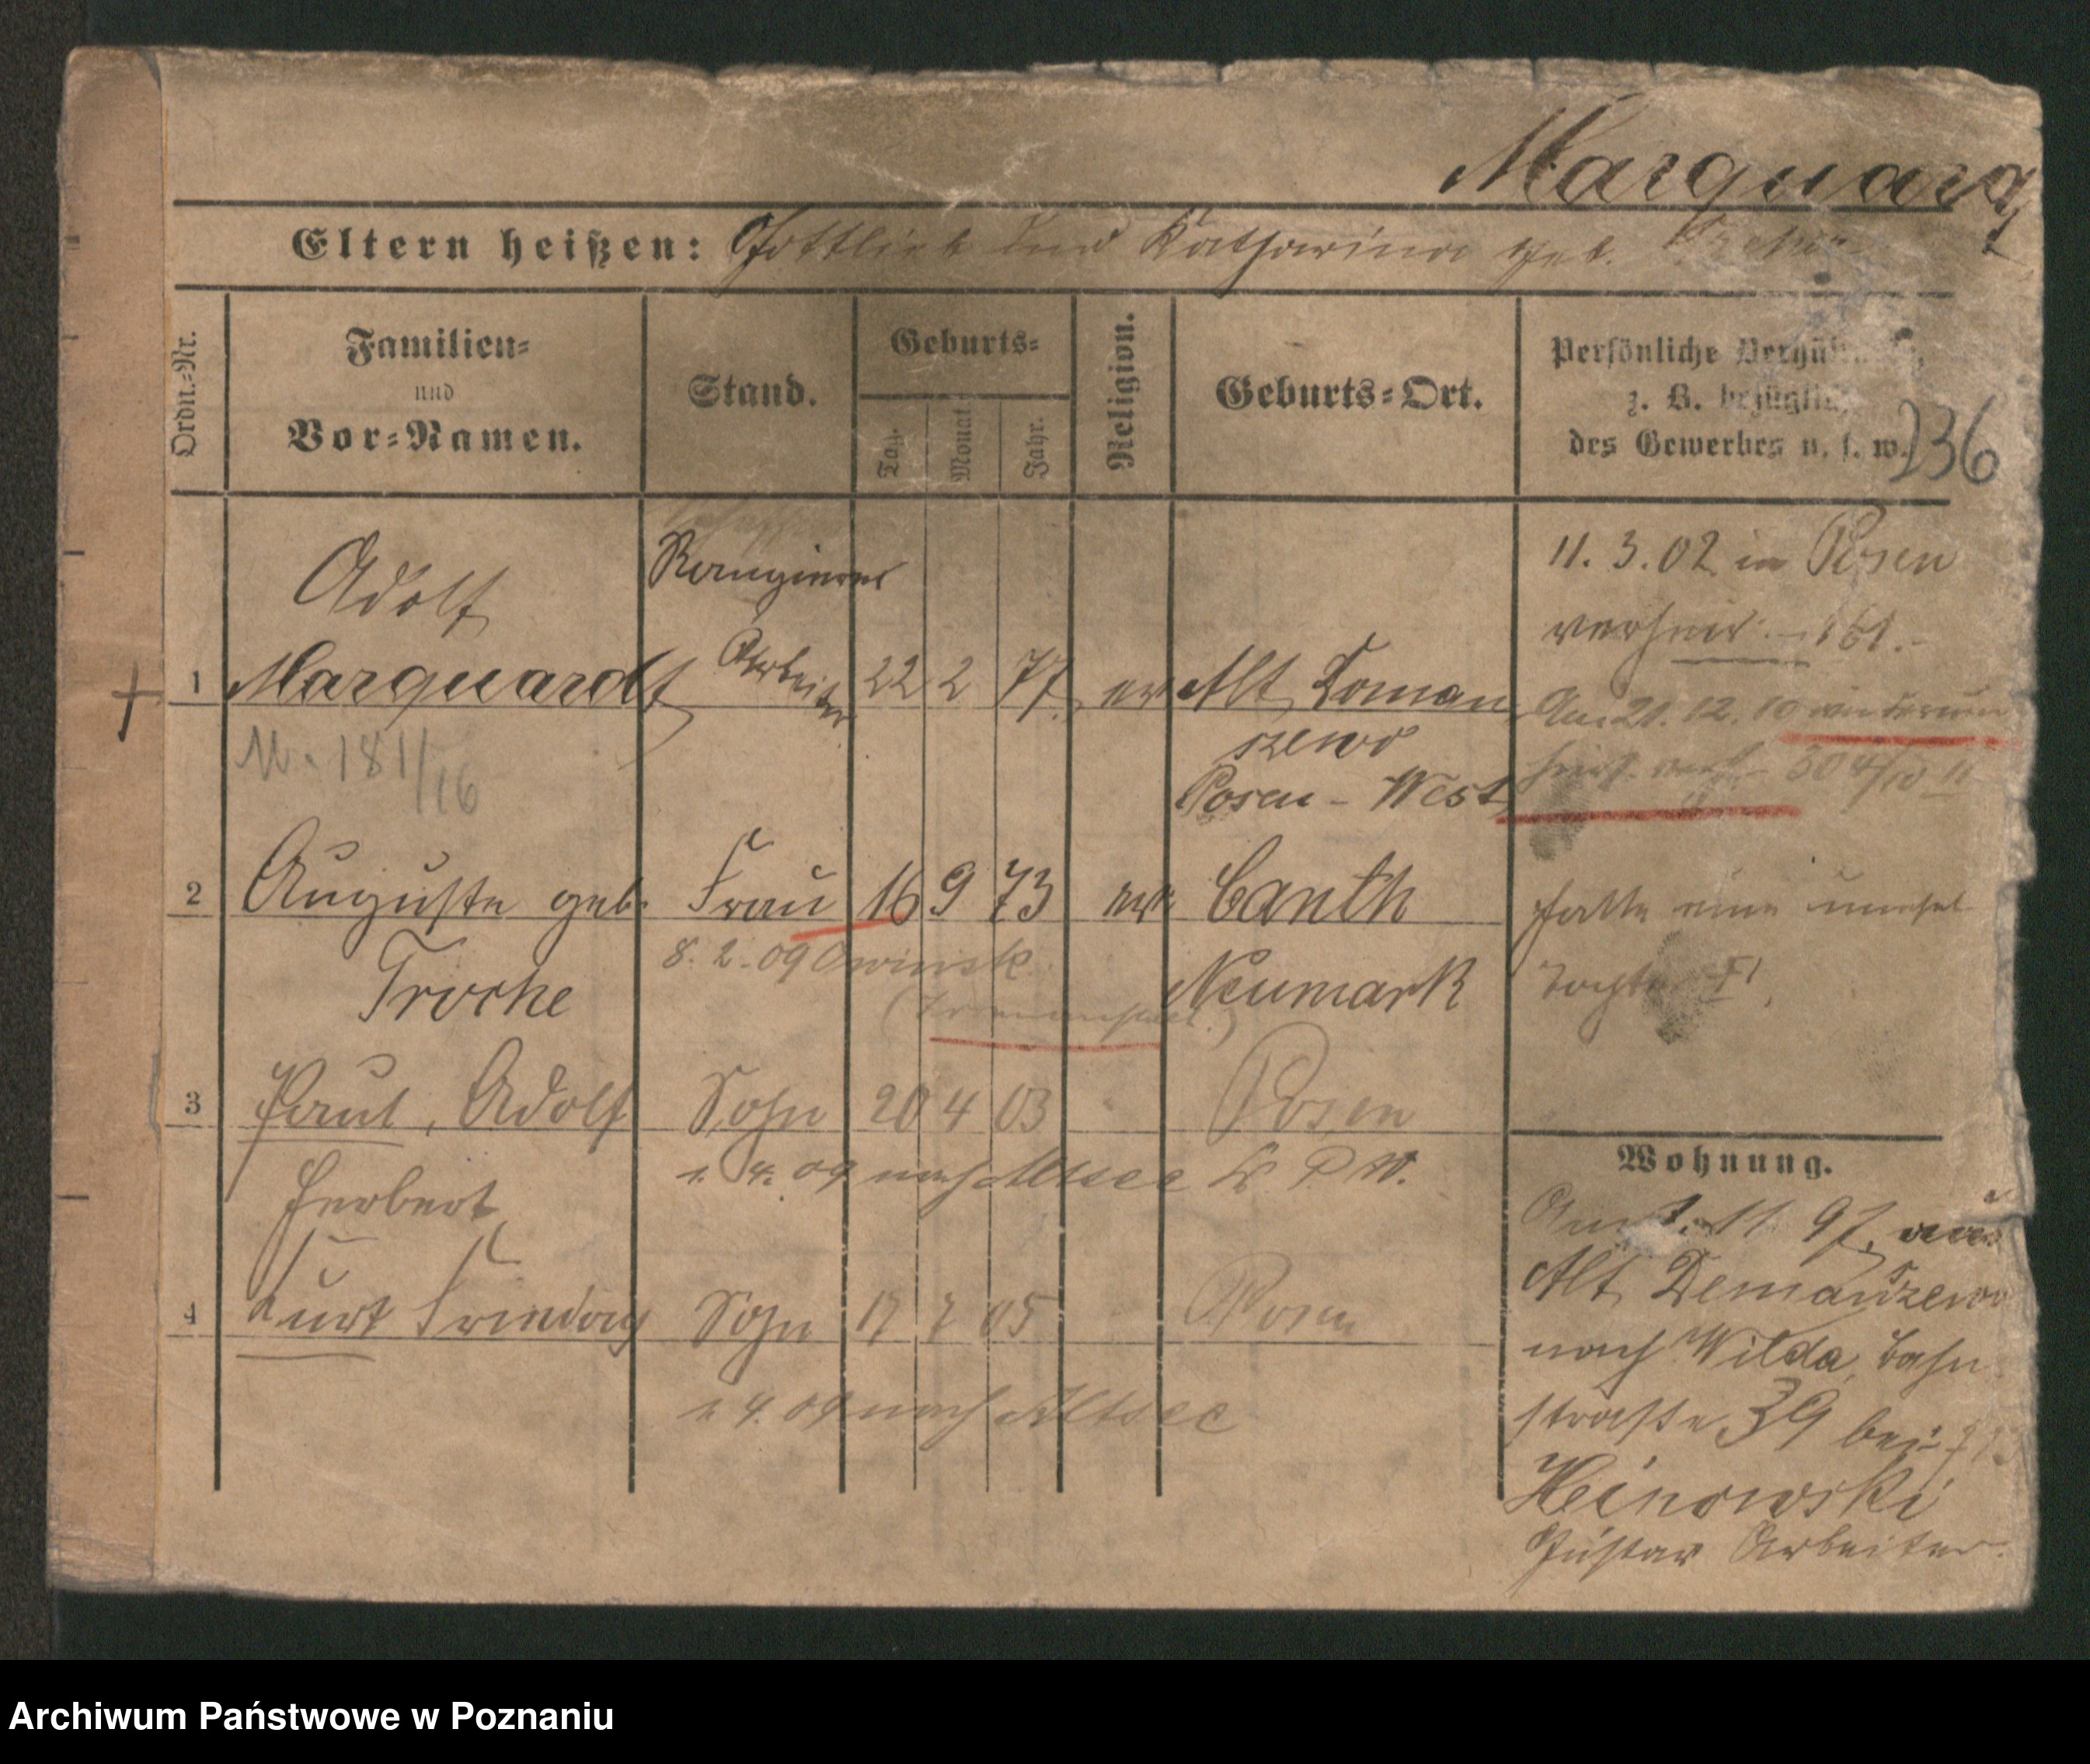 Marquardt
Eltern heißen: Gottlieb und Katharina geb.
Ordn.-Nr.
Familien-
und
Vor-Namen.
Stand.
Geburts-
Tag.
Monat
Jahr.
Religion.
Geburts-Ort.
Persönliche
z. B. bezüglich
des Gewerbes u. s. w.
236
Adolf
Rangierer
11. 3. 02 in Posen
verheir. 161.
1 Marquardt Arbeiter 22 2 77 ev Alt Toman
szewo
Posen - West
Am 21. 12. 10 wiederum
304/10 II
M. 181/16
2 Auguste geb. Frau 16 9 73 ev. Canth
Troche
8. 2. 09 Owinsk
(Irrenanstalt.)
Neumark
hatte eine unehel
Tochter
3 Paul, Adolf Sohn 20 4 03 Posen
Herbert
1. 4. 09 nach Altsee K. P. W.
4 Kurt Friedrich Sohn 17 7 05 Posen
1. 4. 09 nach Altsee
Wohnung.
Am 1. 11 97 von
Alt Demanszewo
nach Wilda, Bahn
straße 39 bei
Heinowski
Gustav Arbeiter.
Archiwum Państwowe w Poznaniu